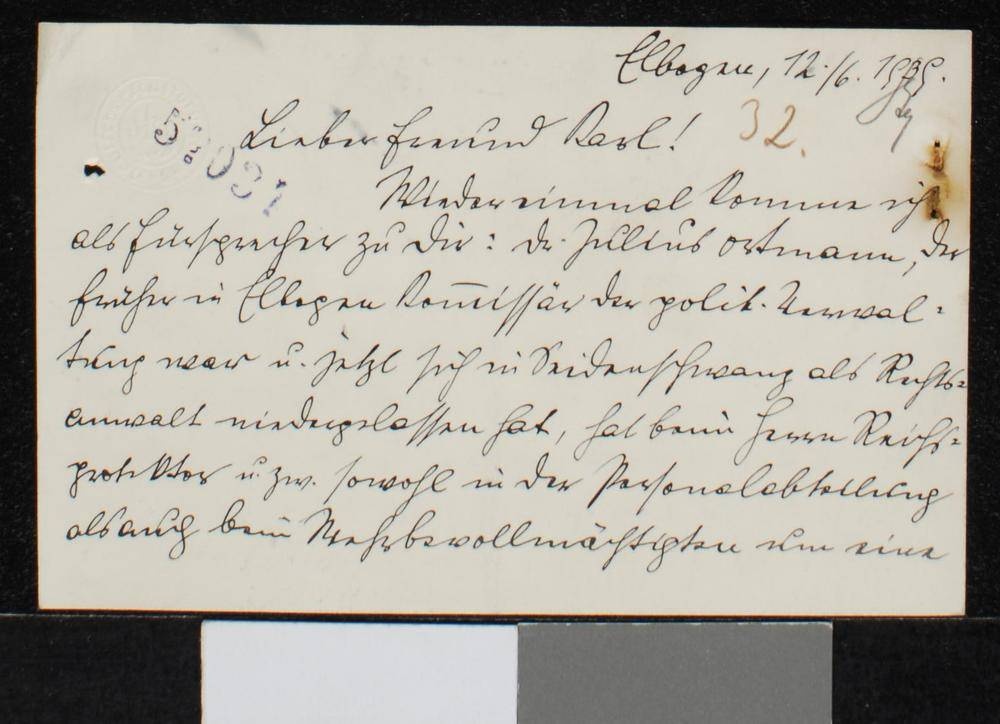 Elbogen, 12./6. 1939.
32.
Lieber Freund Karl!
Wieder einmal komme ich
als Fürsprecher zu Dir: Dr. Julius Ortmann, der
früher in Elbogen Kom̅issär der polit. Verwal-
tung war u. jetzt sich in Seidenschwanz als Rechts-
anwalt niedergelassen hat, hat beim Herrn Reichs-
protektor u. zw. sowohl in der Personalabteilung
als auch beim Wehrbevollmächtigten um eine